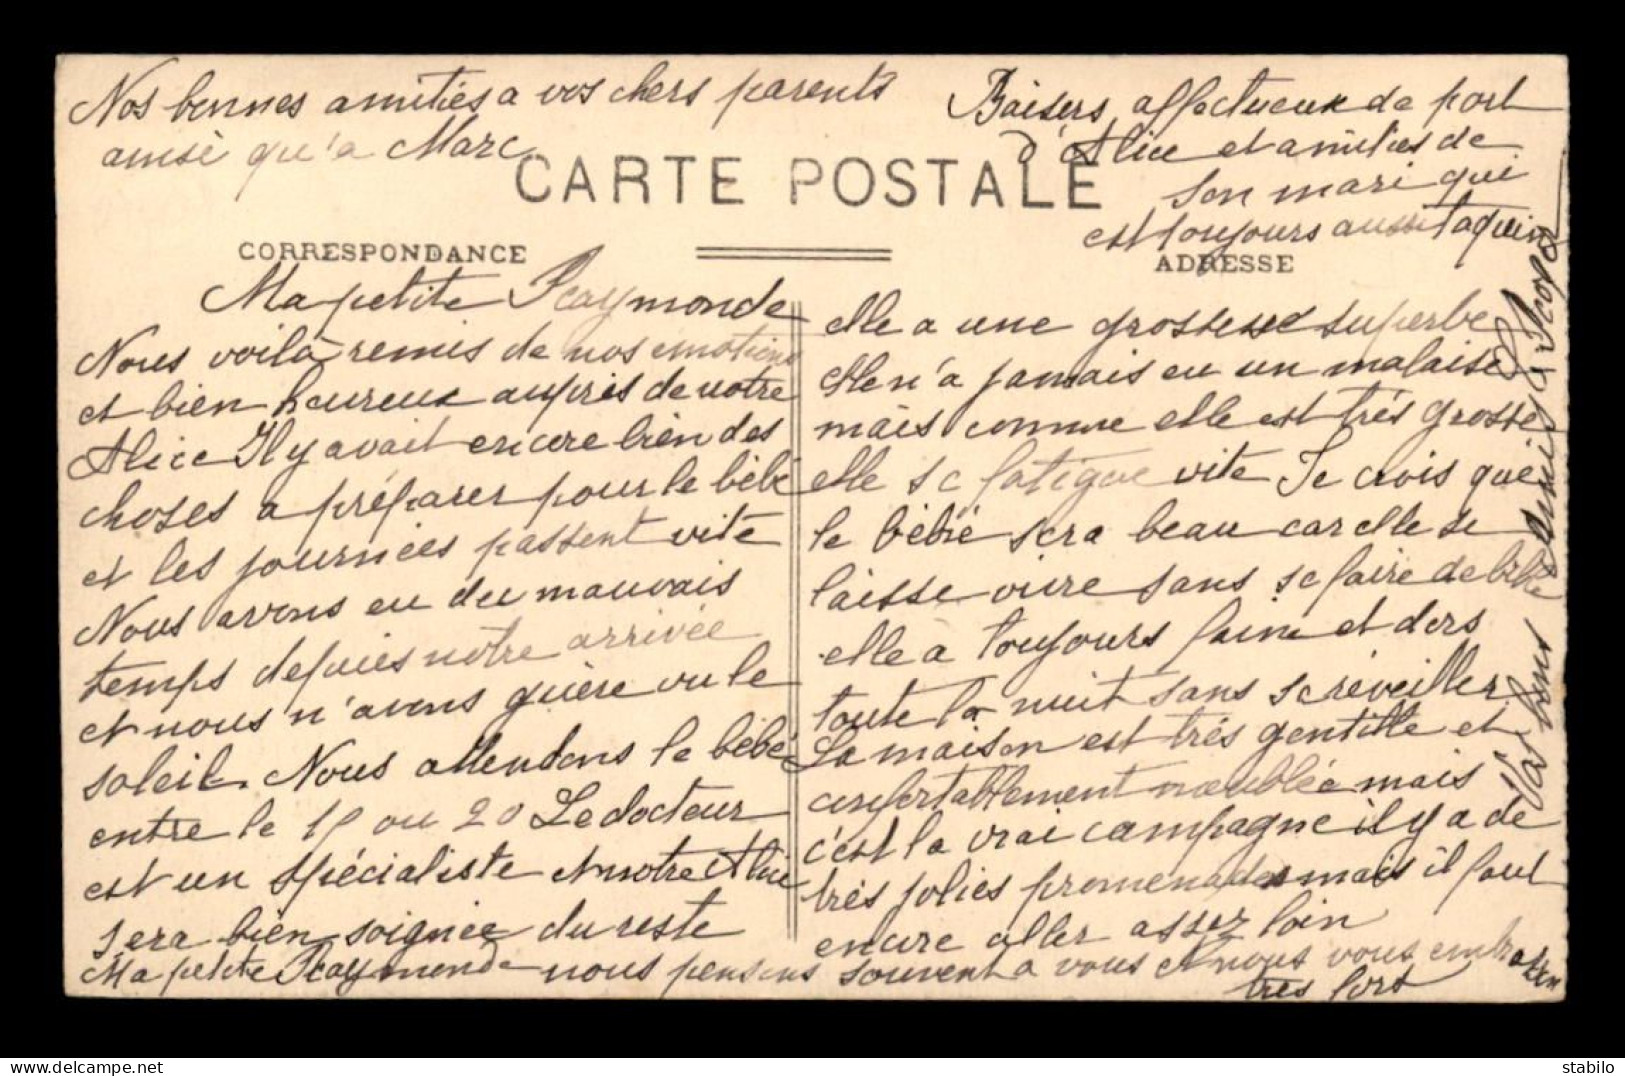 Nos bonnes amitiés a vos chers parents
ainsi qu'a Marc
Baisers affectueux de part
d'Alice et amitiés de
son mari qui
est toujours aussi taquin
CARTE POSTALE
CORRESPONDANCE
ADRESSE
Ma petite Raymonde
Nous voilà remis de nos emotions
et bien heureux auprès de notre
Alice Il y avait encore bien des
choses a préparer pour le bébé
et les journées passent vite
Nous avons eu du mauvais
temps depuis notre arrivée
et nous n'avons guère vu le
soleil. Nous attendons le bébé
entre le 15 ou 20 Le docteur
est un spécialiste et notre Alice
sera bien soignée du reste
elle a une grossesse superbe
elle n'a jamais eu un malaise
mais comme elle est très grosse
elle se fatigue vite Je crois que
le bébé sera beau car elle se
laisse vivre sans se faire de bile
elle a toujours faim et dors
toute la nuit sans se réveiller
La maison est très gentille et
confortablement meublée mais
c'est la vrai campagne il y a de
très jolies promenades mais il faut
encore aller assez loin
Ma petite Raymonde nous pensons souvent a vous et nous vous embrassons
très fort
Vos bons Amis